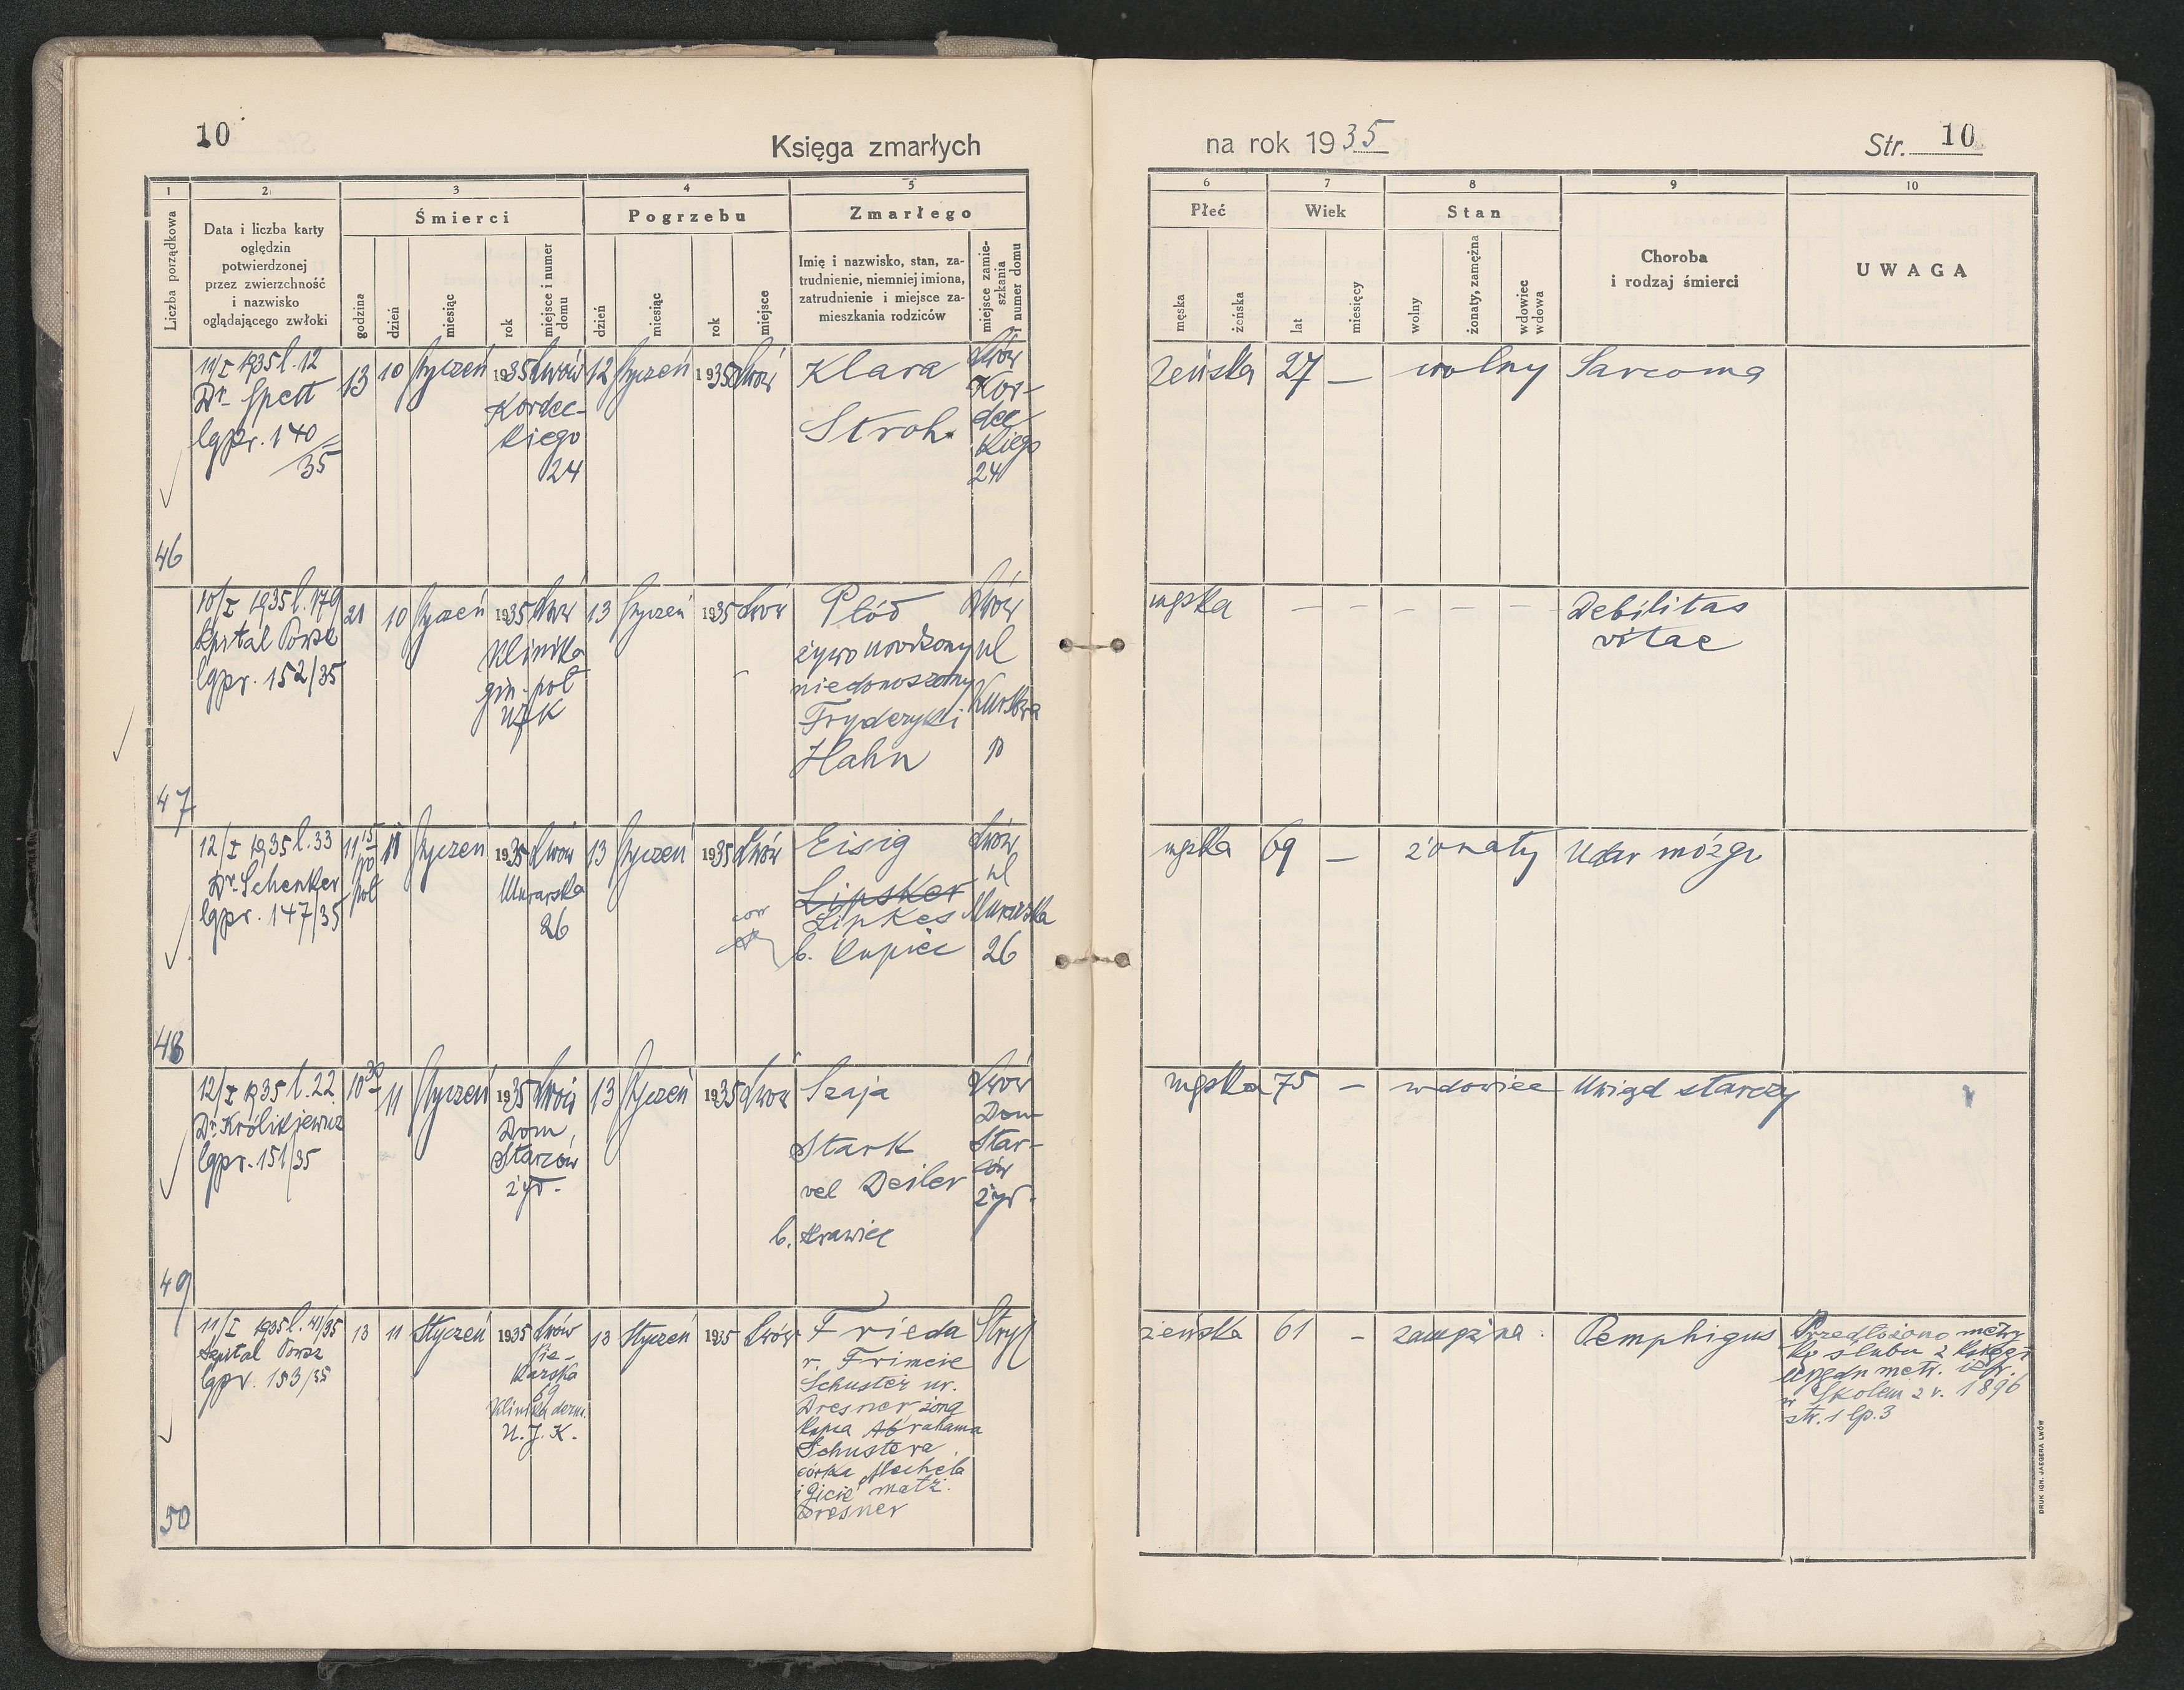 10
Księga zmarłych
1
2
3
4
5
Liczba porządkowa
Data i liczba karty
oględzin
potwierdzonej
przez zwierzchność
i nazwisko
oglądającego zwłoki
Śmierci
godzina
dzień
miesiąc
rok
miejsce i numer
domu
Pogrzebu
dzień
miesiąc
rok
miejsce
Zmarłego
Imię i nazwisko, stan, za-
trudnienie, niemniej imiona,
zatrudnienie i miejsce za-
mieszkania rodziców
miejsce zamie-
szkania
i numer domu
46
11/I 1935 l. 12
Dr Spett
lgpr. 140/35
13
10
Styczeń
1935
Lwów
Kordec-
kiego
24
12
Styczeń
1935
Lwów
Klara
Stroh
Lwów
Kor-
dec
kiego
24
47
10/I 1935 l. 179
Szpital Powsz
lgpr. 152/35
21
10
Styczeń
1935
Lwów
Klinika
gin-poł
UJK
13
Styczeń
1935
Lwów
Płód
żywo urodzony
niedonoszony
Fryderyki
Hahn
Lwów
ul
10
48
12/I 1935 l. 33
Dr Schenker
lgpr. 147/35
11 15
po
poł
11
Styczeń
1935
Lwów
Murarska
26
13
Styczeń
1935
Lwów
Eisig
Lipsker
Lipkes
b. kupiec
Lwów
ul
Murarska
26
49
12/I 1935 l. 22
Dr Królikiewicz
lgpr. 151/35
10 30
11
Styczeń
1935
Lwów
Dom
Starców
żyd.
13
Styczeń
1935
Lwów
Szaja
Stark
vel Deiler
b. krawiec
Lwów
Dom
Star-
ców
żyd.
50
11/I 1935 l. 41/35
Szpital Powsz
lgpr. 153/35
13
11
Styczeń
1935
Lwów
Pie-
karska
69
Klinika derm.
U.J.K.
13
Styczeń
1935
Lwów
Frieda
v. Frimcie
Schuster ur.
Dresner żona
kupca Abrahama
Schustera
córka Mechela
i Gicie małż.
Dresner
Stryj
na rok 1935
Str. 10
6
7
8
9
10
Płeć
męska
żeńska
Wiek
lat
miesięcy
Stan
wolny
żonaty, zamężna
wdowiec
wdowa
Choroba
i rodzaj śmierci
UWAGA
żeńska
27
—
wolny
Sarcoma
męska
— — — — —
Debilitas
vitae
męska
69
—
żonaty
Udar mózgu
męska
75
—
wdowiec
Uwiąd starczy
żeńska
61
—
zamężna
Pemphigus
Przedłożono metry
kę ślubu z księgi
urzędu metr. izr.
w Skolem z r. 1896
str. 1 lp. 3
DRUK IGN. JAEGERA LWÓW